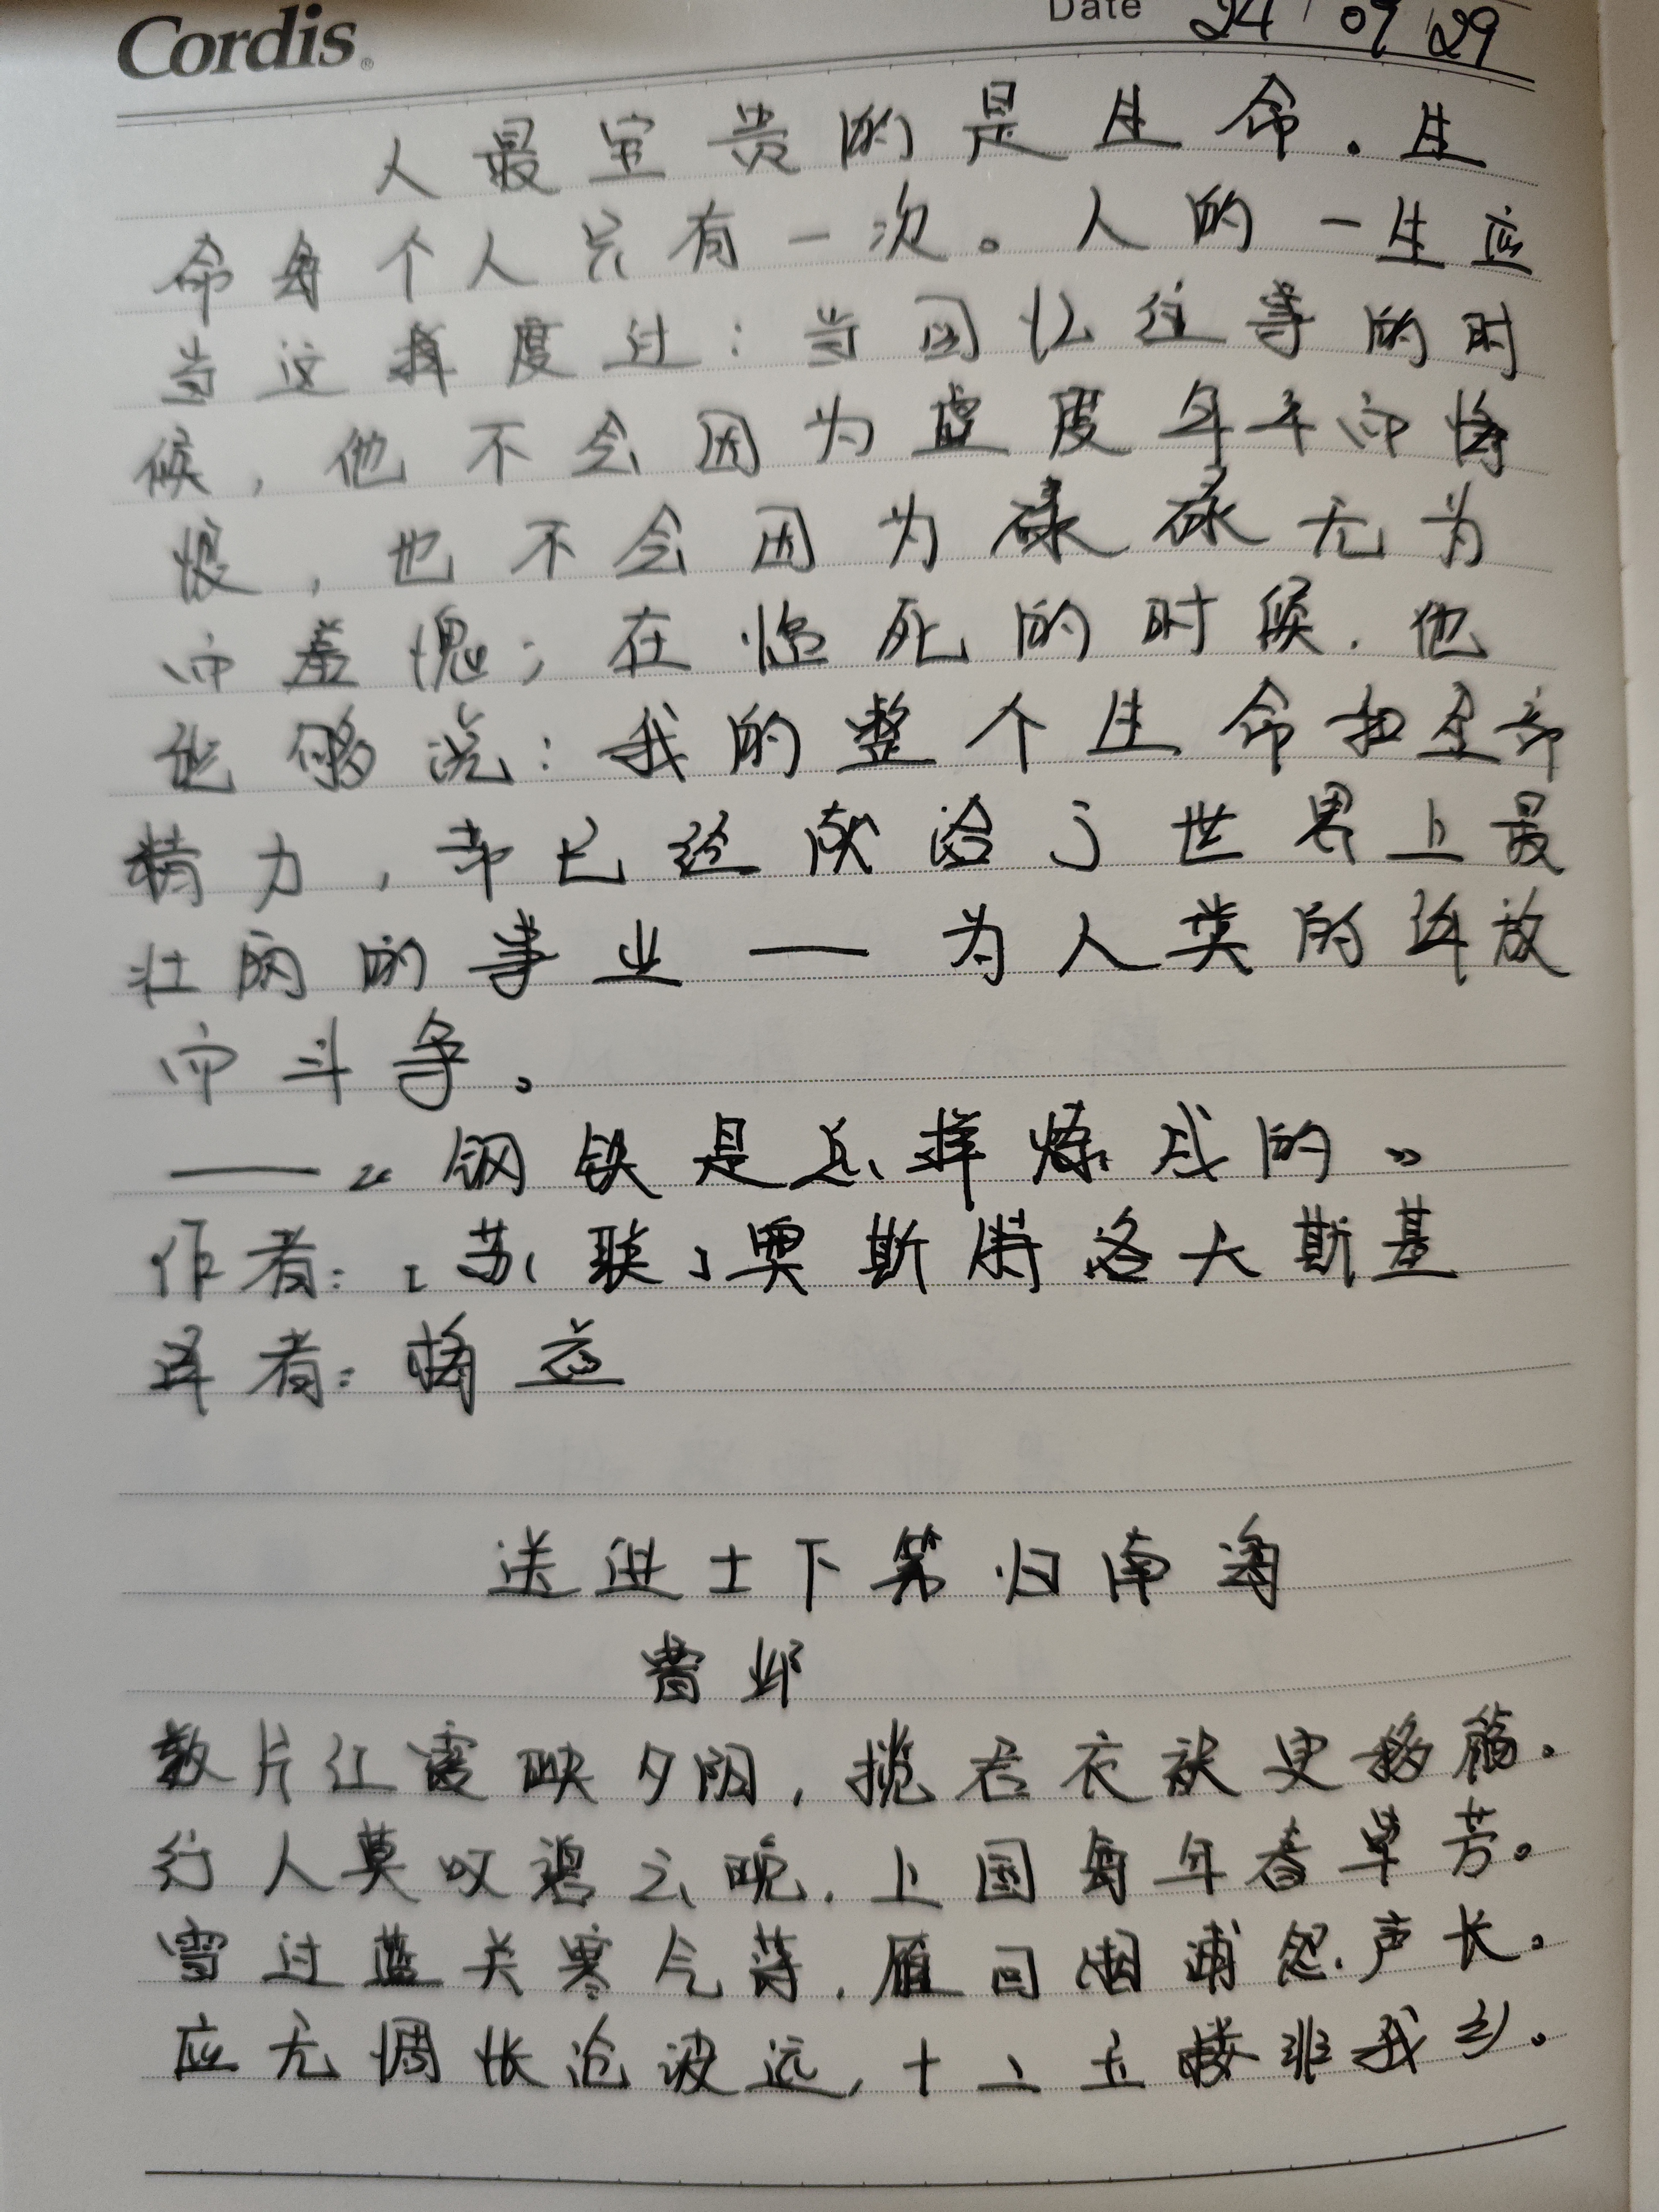 Cordis®
Date 24 / 09 / 29
人最宝贵的是生命.生
命每个人只有一次。人的一生应
当这样度过:当回忆往事的时
候,他不会因为虚度年华而悔
恨,也不会因为碌碌无为
而羞愧;在临死的时候,他
能够说:我的整个生命和全部
精力,都已经献给了世界上最
壮丽的事业——为人类的解放
而斗争。
——《钢铁是怎样炼成的》
作者:[苏联]奥斯特洛夫斯基
译者:梅益
送进士下第归南海
曹邺
数片红霞映夕阳,揽君衣袂更移觞。
行人莫叹碧云晚,上国每年春草芳。
雪过蓝关寒气薄,雁回湘浦怨声长。
应无惆怅沧波远,十二玉楼非我乡。